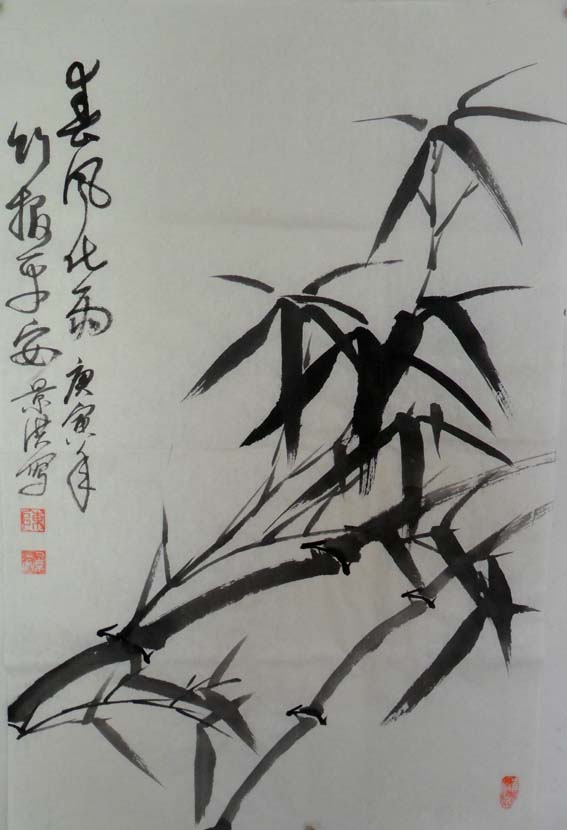 春风化雨 庚寅年
竹报平安 景洪写